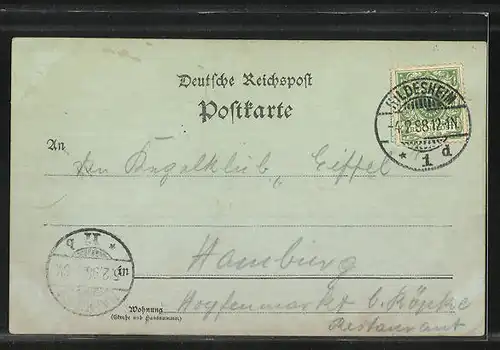 Deutsche Reichspost
Postkarte
HILDESHEIM
4.2.98.12-1N
* 1 d
An
Den Kegelklub „Eiffel"
in
Hamburg
Hopfenmarkt b. Köpke
Restaurant
Wohnung
(Straße und Hausnummer)